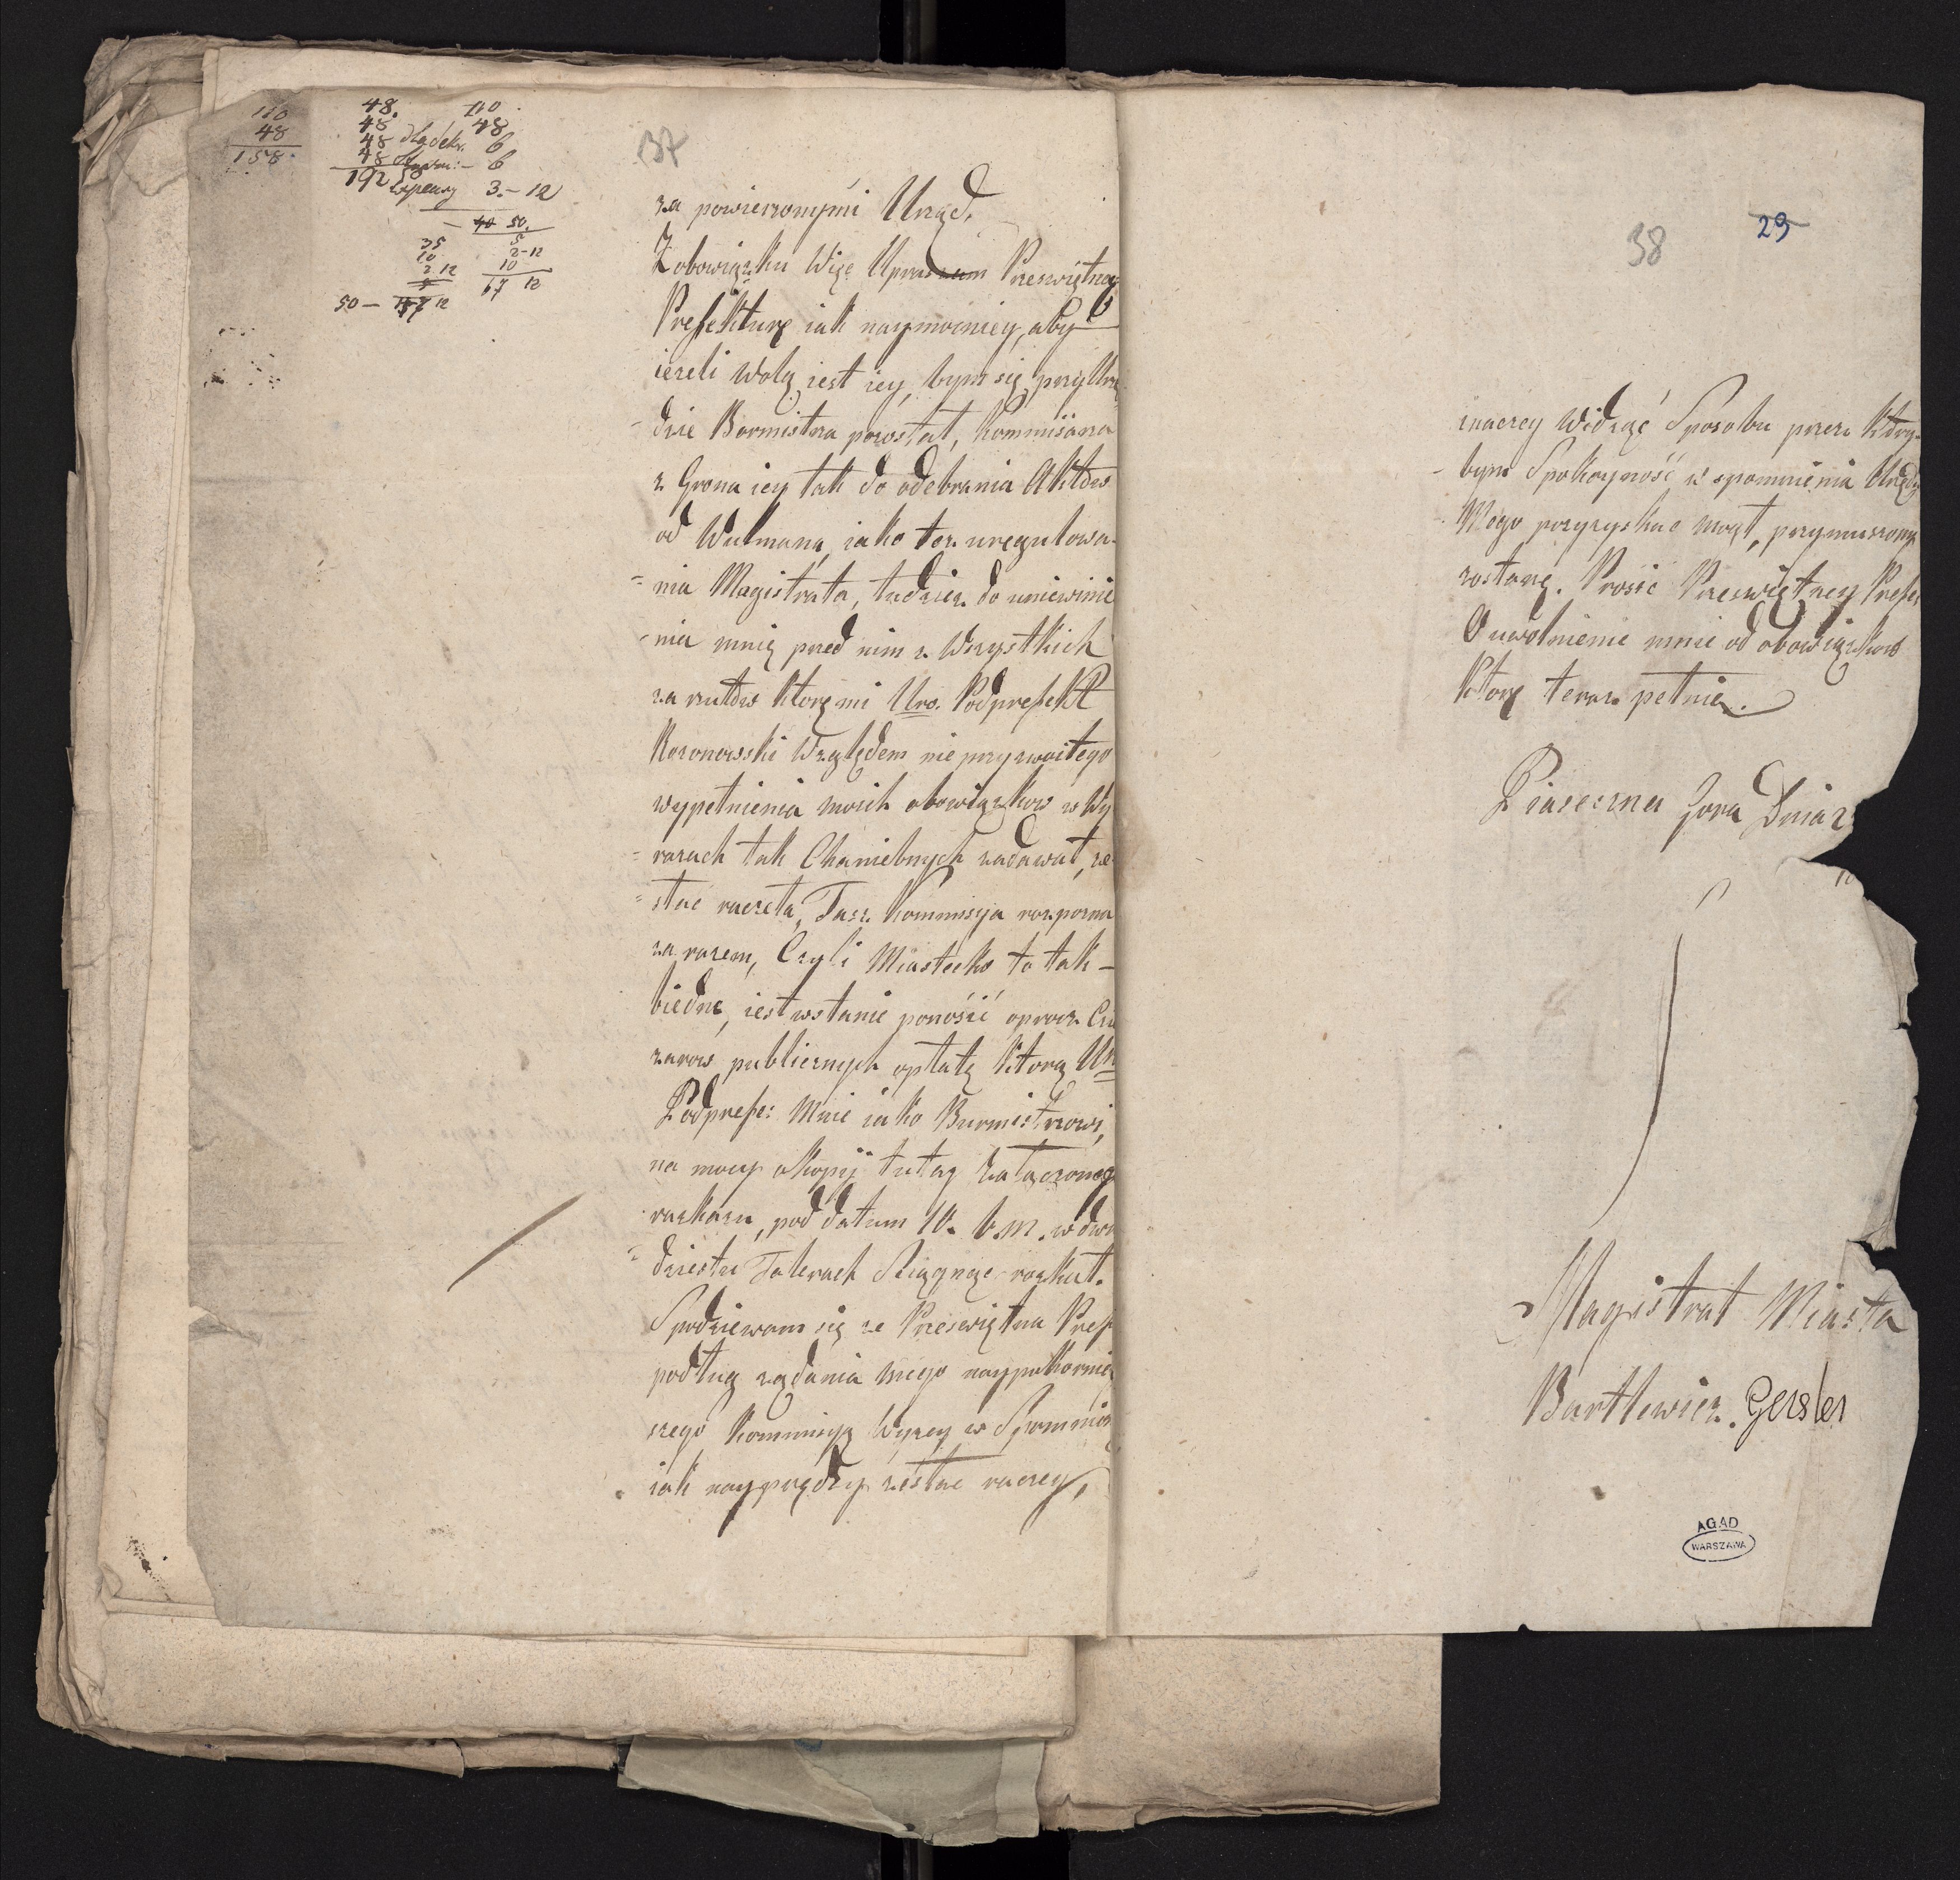 110
48
158
48.
48
48
48
192
110
48
6
6
3.- 12
40 50.
5
2-12
10
67 12
35
10
2 12
5
50 - 12
37
za powierzonymi Urzęd.
Z obowiązku Więc Upraszam Przeświętną
Prefekturę iak naymocniey, aby
ieżeli Wolą iest iey, bym się przy Urzę
- dzie Bormistrza pozostał, Kommisarza
z Grona iey tak do odebrania Aktów
od Wulmana, iako też uregulowa-
= nia Magistrata, tudzież do uniewinie
- nia mnię przed nim z Wszystkich
zarzutów którę mi Uro. Podprefekt
Kozonowski Względem nieprzyzwoitego
wypełnienia moich obowiązkow w Wy
= razach tak Chaniebnych zadawał, ze
= słac raczeła, Taż Kommisya rozpozna
zarazem, Czyli Miasteczko to tak -
biedne, iest wstanie ponosić oprocz Cię
żarow publicznych opłatę Którą Ur
Podprefe: Mnie iako Burmistrzowi,
na mocy okopij tutay załączoneg
rozkazu, pod datum 10. b.m. w dwu
= dziestu Talerach Sciągnąc rozkał.
Spodziewam się ze Przeświętna Pref
podług ządania mego naypokorniey
szego Kommisyą Wyżey w Spomnio
iak nayprędzy zesłac raczey,
38
29
inaczey Widząć Sposobu przez Który-
- bym Spokoyność w spomnienia Urzędu
Mego pozyskac mógł, przymuszony
zostanę. Prosić Przeświętney Prefe
O uwolnienie mnie od obowiązkow
Którę teraz pełnię.
Piaseczna Gora Dnia 2
Magistrat Miasta
Bartlewicz. Gersler
AGAD
WARSZAWA